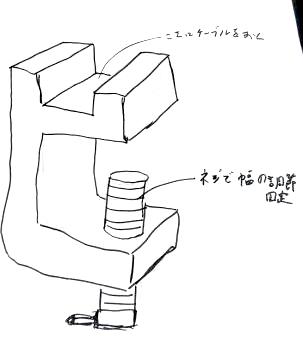 ここにケーブルをおく
ネジで幅の調節
固定